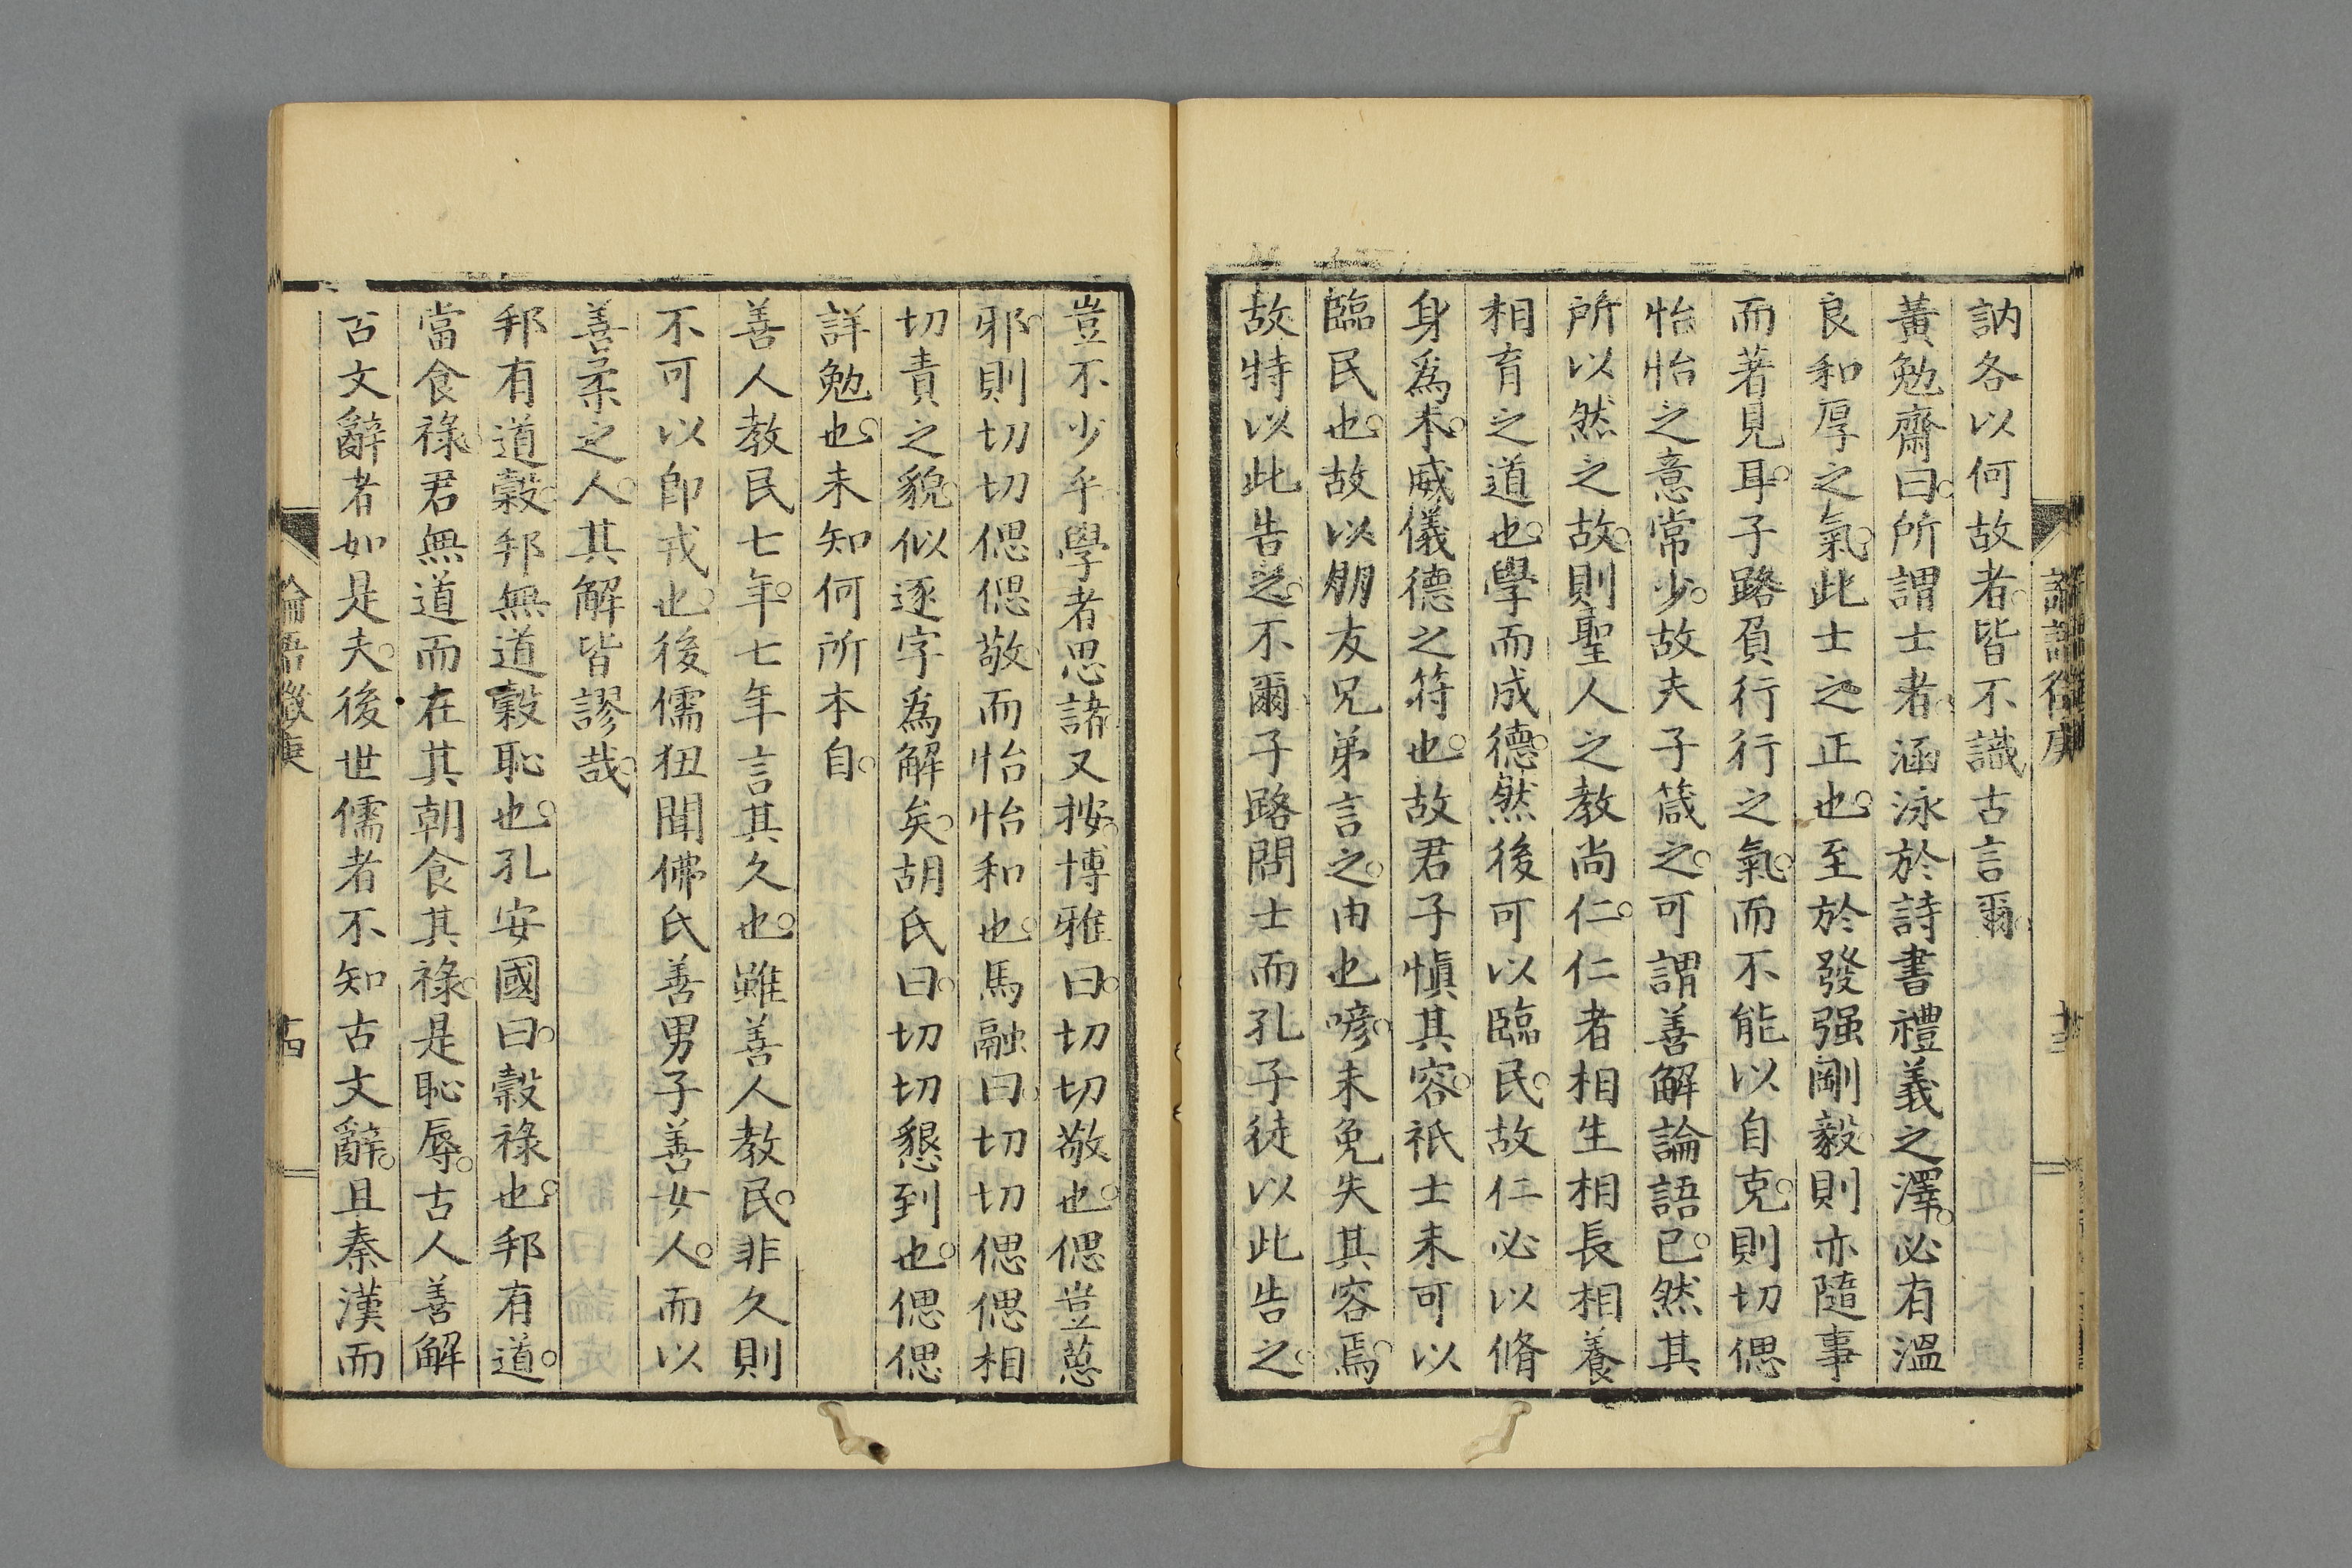 訥各以何故者。皆不識古言爾。
黃勉齋曰。所謂士者。涵泳於詩書禮義之澤。必有溫
良和厚之氣。此士之正也。至於發强剛毅。則亦隨事
而著見耳。子路負行行之氣。而不能以自克。則切偲
怡怡之意常少。故夫子箴之。可謂善解論語已。然其
所以然之故。則聖人之教尚仁。仁者相生相長相養
相育之道也。學而成德。然後可以臨民。故仁必以脩
身爲本。威儀德之符也。故君子愼其容。祇士未可以
臨民也。故以朋友兄弟言之。由也喭。未免失其容焉。
故特以此告之。不爾。子路問士而孔子徒以此告之。
豈不少乎學者思諸。又按。博雅曰。切切敬也。偲豈葸
邪。則切切偲偲敬。而怡怡和也。馬融曰。切切偲偲相
切責之貌。似逐字爲解矣。胡氏曰。切切懇到也。偲偲
詳勉也。未知何所本自。
善人教民七年。七年言其久也。雖善人教民。非久則
不可以即戎也。後儒狃聞佛氏善男子善女人。而以
善柔之人。其解皆謬哉。
邦有道穀。邦無道穀恥也。孔安國曰。穀祿也。邦有道。
當食祿。君無道而在其朝食其祿。是恥辱。古人善解
古文辭者如是夫。後世儒者不知古文辭。且秦漢而
論語徵庚
十四